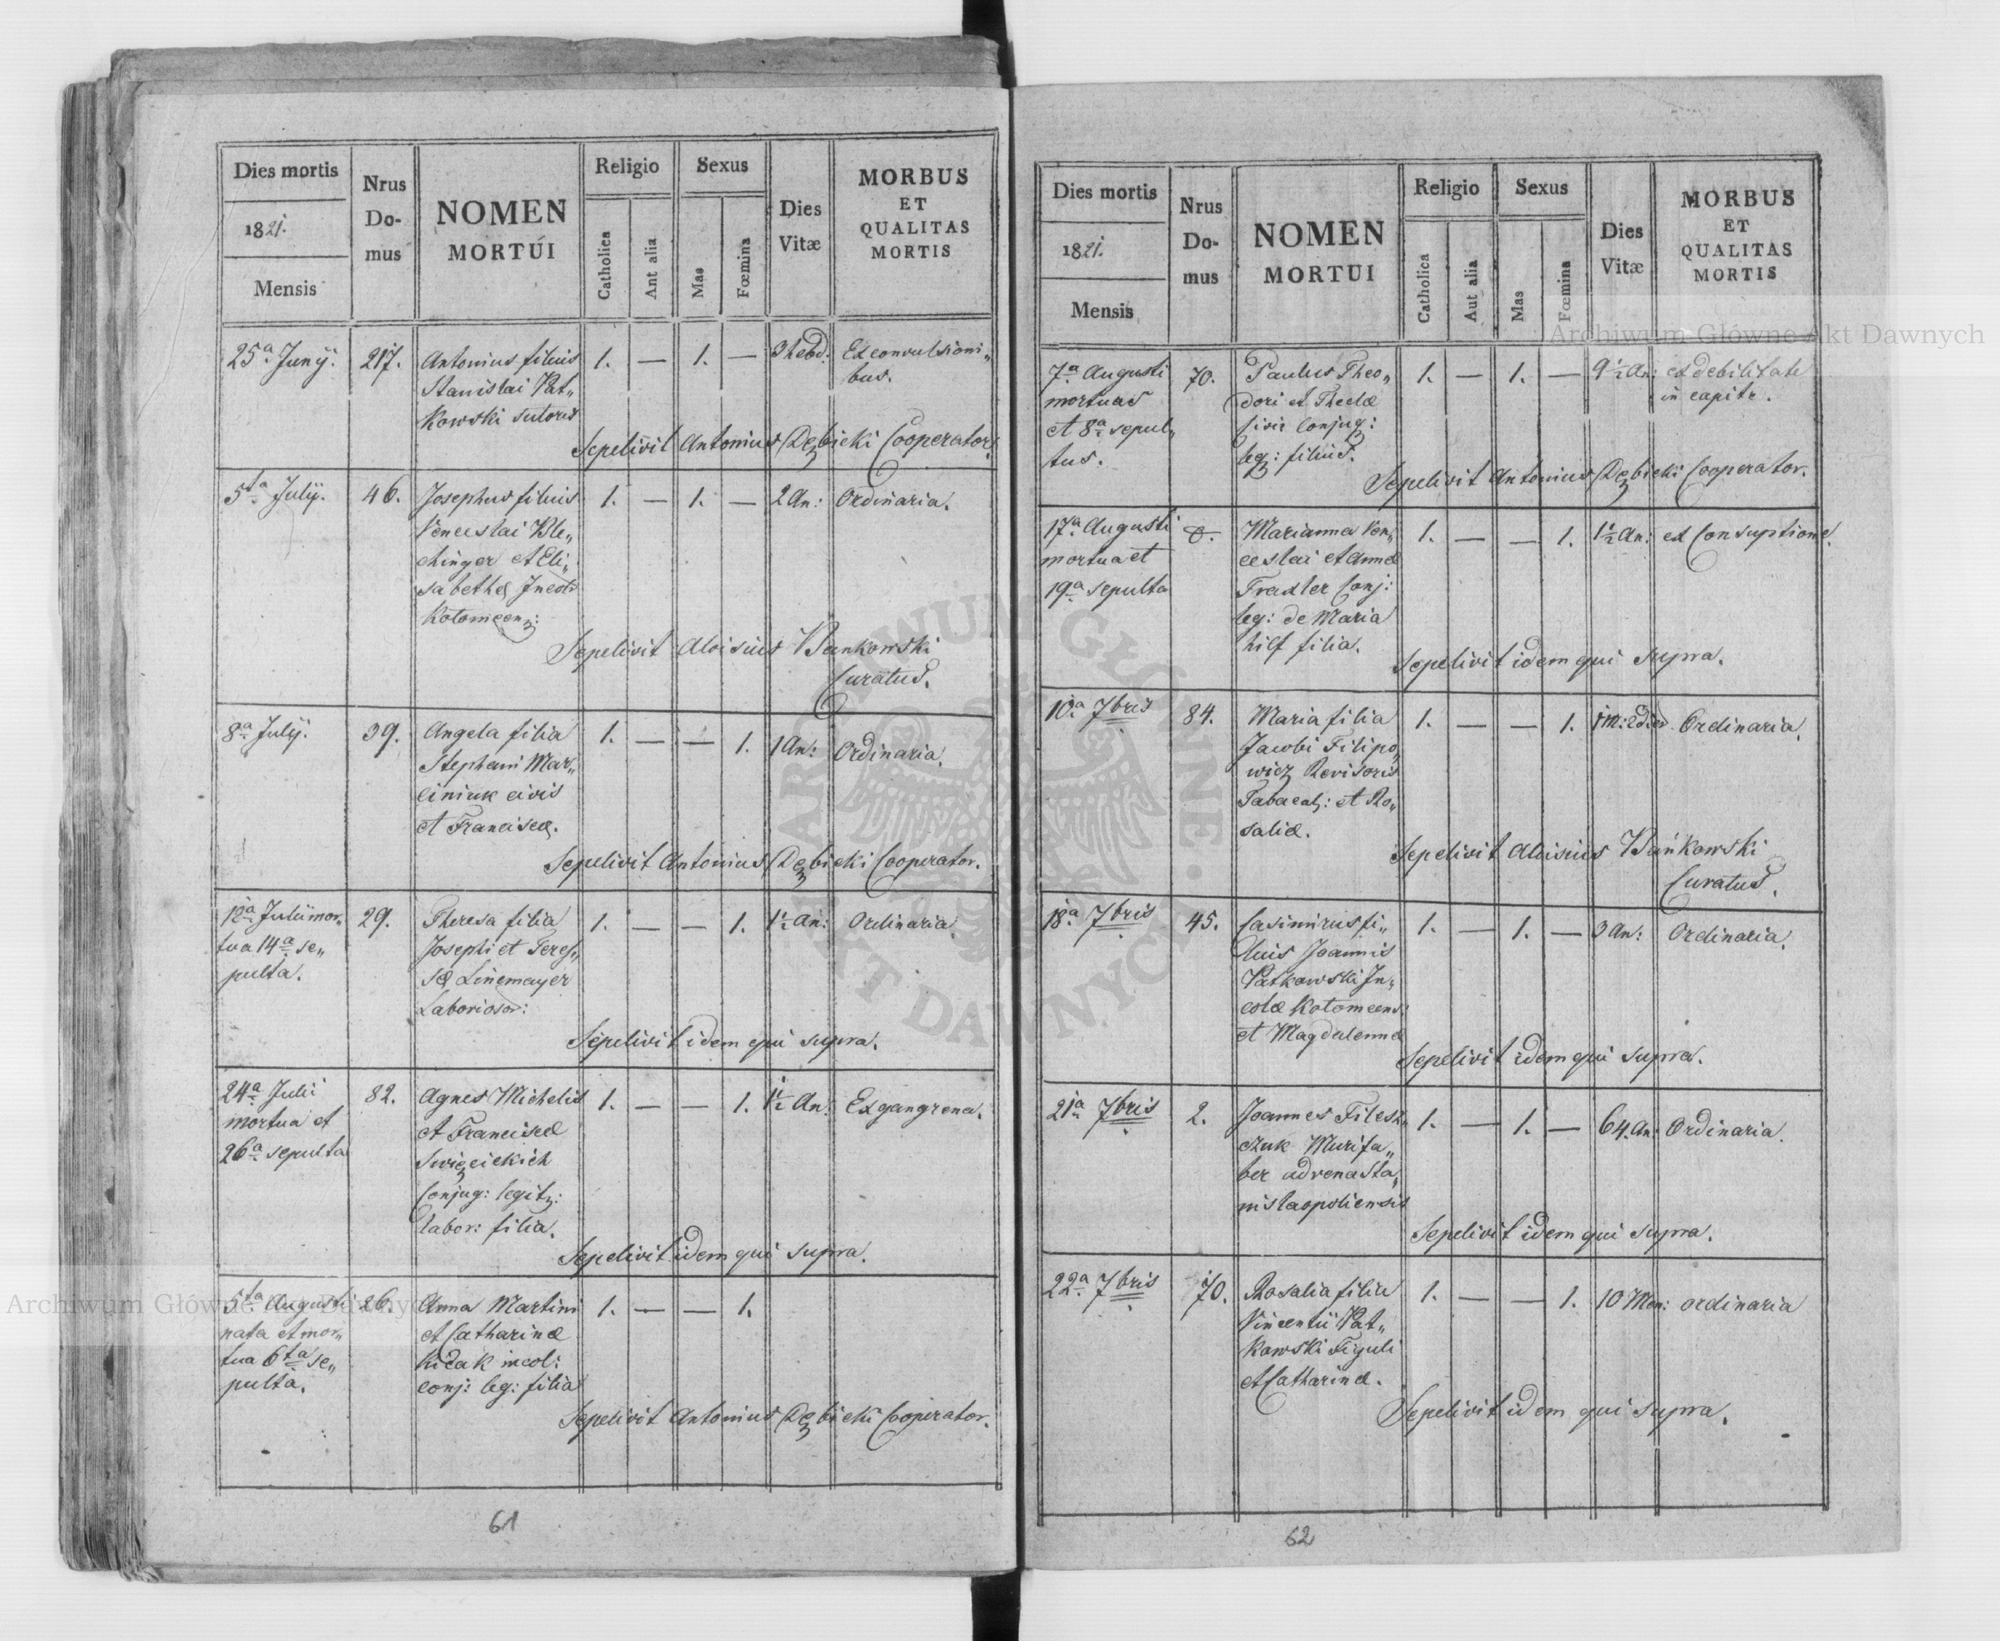 Dies mortis
1821.
Mensis
Nrus
Do-
mus
NOMEN
MORTUI
Religio
Catholica
Aut alia
Sexus
Mas
Fœmina
Dies
Vitæ
MORBUS
ET
QUALITAS
MORTIS
25a Junÿ. 217. Antonius filius 1. — 1. — 3 hebd: Ex convulsioni„
Stanislai Pat„ bus.
kowski sutoris
Sepelivit Antonius Dębicki Cooperator.
5ta Julÿ. 46. Josephus filius 1. — 1. — 2 An: Ordinaria.
Venceslai Ble„
chinger et Eli„
sabethæ Incol:
Kolomeen:
Sepelivit Aloisius Bankowski
Curatus.
8a Julÿ. 39. Angela filia 1. — — 1. 1 An: Ordinaria.
Stephani Mar„
ciniuk civis
et Franciscæ.
Sepelivit Antonius Dębicki Cooperator.
12a Julii mor„ 29. Theresa filia 1. — — 1. 1½ An: Ordinaria.
tua 14a se„ Josephi et Teres„
pulta. sæ Linemayer
Laborioso:
Sepelivit idem qui supra.
24a Julii 82. Agnes Michelis 1. — — 1. 1½ An: Ex gangrena.
mortua et et Franciscæ
26a sepulta Swięcickich
Conjug: legit:
labor: filia.
Sepelivit idem qui supra.
5ta Augusti 26. Anna Martini 1. — — 1.
nata et mor„ et Catharinæ
tua 6ta se„ incol:
pulta. conj: leg: filia
Sepelivit Antonius Dębicki Cooperator.
61
Dies mortis
1821.
Mensis
Nrus
Do-
mus
NOMEN
MORTUI
Religio
Catholica
Aut alia
Sexus
Mas
Fœmina
Dies
Vitæ
MORBUS
ET
QUALITAS
MORTIS
7a Augusti 70. Paulus Theo„ 1. — 1. — 9½ An: ex debilitate
mortuus dori et Theclæ in capite.
et 8a sepul„ Conjug:
tus. leg: filius.
Sepelivit Antonius Dębicki Cooperator.
17a Augusti Marianna Ven„ 1. — — 1. 1½ An: ex Consuptione.
mortua et ceslai et Annæ
19a sepulta Traxler Conj:
leg: de Maria
hilf filia.
Sepelivit idem qui supra.
10a 7bris 84. Maria filia 1. — — 1. 1 M: 2 dier Ordinaria.
Jacobi Filipo„
wicz Revisoris
Tabac: et Ro„
saliæ.
Sepelivit Aloisius Bańkowski
Curatus.
18a 7bris 45. Casimirus fi„ 1. — 1. — 3 An: Ordinaria.
lius Joannis
Patkowski In„
colæ Kolomeens:
et Magdalennæ
Sepelivit idem qui supra.
21a 7bris 2. Joannes Filesz„ 1. — 1. — 64. An: Ordinaria.
czuk Murifa„
ber advena Sta„
nislaopoliensis
Sepelivit idem qui supra.
22a 7bris 70. Rosalia filia 1. — — 1. 10 Men: ordinaria
Vincentii Pat„
kowski Figuli
et Catharinæ.
Sepelivit idem qui supra.
62
Archiwum Główne Akt Dawnych
Archiwum Główne Akt Dawnych
ARCHIWUM GŁÓWNE · AKT DAWNYCH